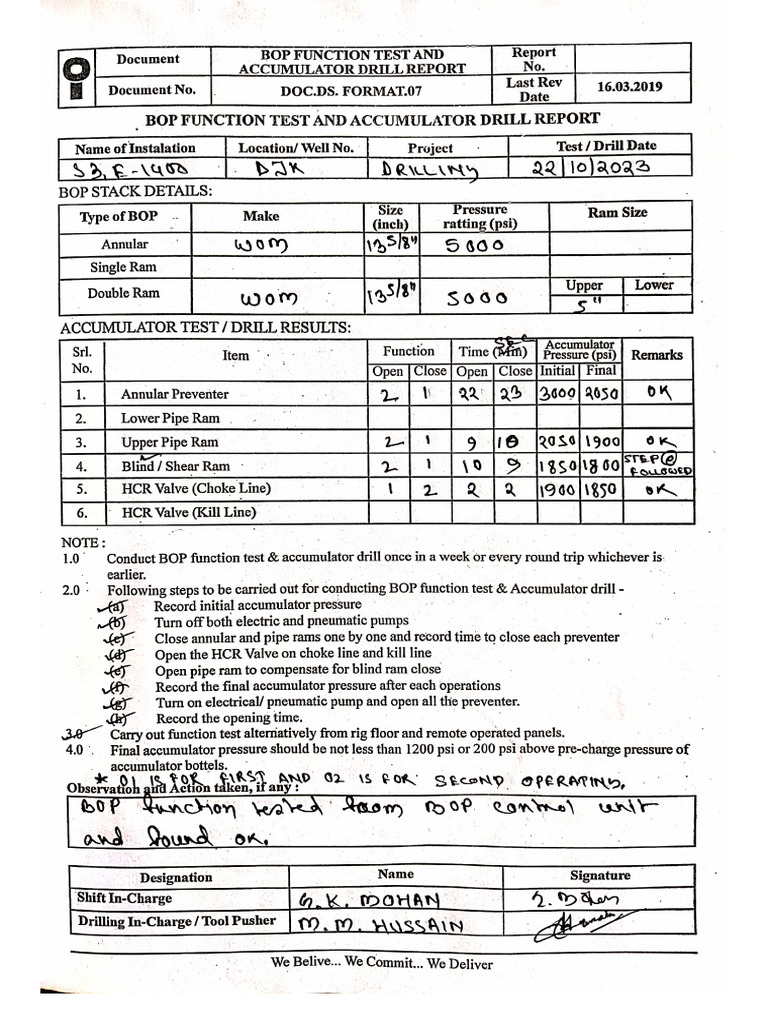 Document BOP FUNCTION TEST AND ACCUMULATOR DRILL REPORT Report No.
Document No. DOC.DS. FORMAT.07 Last Rev Date 16.03.2019
BOP FUNCTION TEST AND ACCUMULATOR DRILL REPORT
Name of Instalation Location/ Well No. Project Test / Drill Date
DJK DRILLING 22/10/2023
BOP STACK DETAILS:
Type of BOP Make Size (inch) Pressure ratting (psi) Ram Size
Annular WOM 13 5/8" 5000
Single Ram
Upper Lower
Double Ram WOM 13 5/8" 5000 5"
ACCUMULATOR TEST / DRILL RESULTS:
Srl. No. Item Function Time (Min) SEC Accumulator Pressure (psi) Remarks
Open Close Open Close Initial Final
1. Annular Preventer 2 1 22 23 3000 2050 OK
2. Lower Pipe Ram
3. Upper Pipe Ram 2 1 9 10 2050 1900 OK
4. Blind / Shear Ram 2 1 10 9 1850 1800 STEP @ FOLLOWED
5. HCR Valve (Choke Line) 1 2 2 2 1900 1850 OK
6. HCR Valve (Kill Line)
NOTE :
1.0 Conduct BOP function test & accumulator drill once in a week or every round trip whichever is
earlier.
2.0 Following steps to be carried out for conducting BOP function test & Accumulator drill -
(a) Record initial accumulator pressure
(b) Turn off both electric and pneumatic pumps
(c) Close annular and pipe rams one by one and record time to close each preventer
(d) Open the HCR Valve on choke line and kill line
(e) Open pipe ram to compensate for blind ram close
(f) Record the final accumulator pressure after each operations
(g) Turn on electrical/ pneumatic pump and open all the preventer.
(h) Record the opening time.
3.0 Carry out function test alternatively from rig floor and remote operated panels.
4.0 Final accumulator pressure should be not less than 1200 psi or 200 psi above pre-charge pressure of
accumulator bottels.
* 01 IS FOR FIRST AND 02 IS FOR SECOND OPERATING.
Observation and Action taken, if any :
BOP function tested from BOP control unit
and found ok.
Designation Name Signature
Shift In-Charge S.K. MOHAN S. Mohan
Drilling In-Charge / Tool Pusher M.M. HUSSAIN
We Belive... We Commit... We Deliver